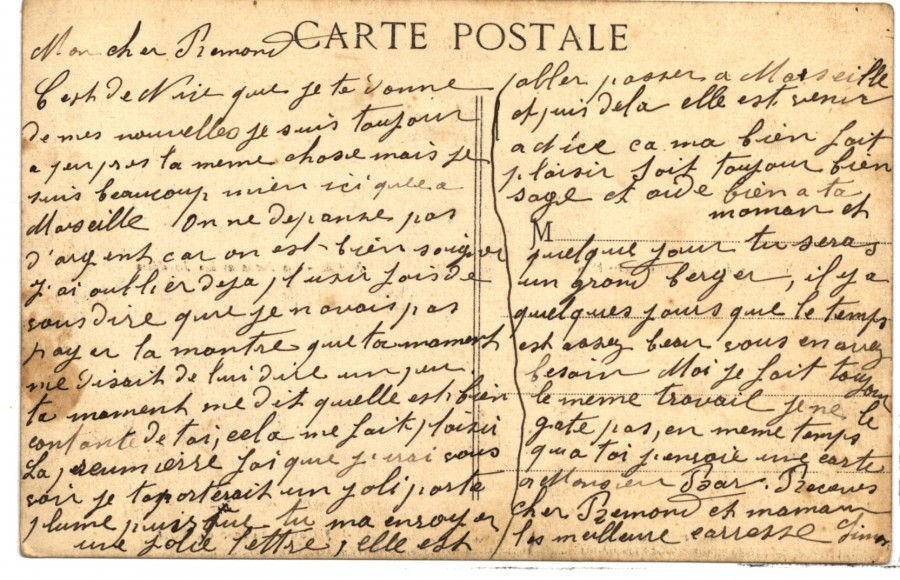 CARTE POSTALE
Mon cher Remond
C'est de Nice que je te donne
de mes nouvelles je suis toujour
a peu pres la meme chose mais je
suis beaucoup mien ici qu'a
Marseille On ne depanse pas
d'argent car on est bien soigner
J'ai oublier deja plusir fois de
vous dire que je n'avais pas
payer la montre que ta mament
me disait de lui dire un peu
ta mament me dit qu'elle est bien
contante de toi, cela me fait plaisir
La preumierre fois que j'irai vous
voir je t'aporterait un joli porte
plume puisque tu m'a envoyer
une jolie lettre, elle est
aller passer a Marseille
et puis de la elle est venir
a dice ca ma bien fait
plaisir soit toujour bien
sage et aide bien a ta
moman et
M
quelque jour tu seras
un grand berger, il y a
quelques jours que le temps
est assez beau vous en avez
besoin Moi je fait toujour
le meme travail je ne le
gate pas, en meme temps
qu'a toi j'envoie une carte
a Monsieur Bar. Recoives
cher Remond et maman
les meilleure carresse